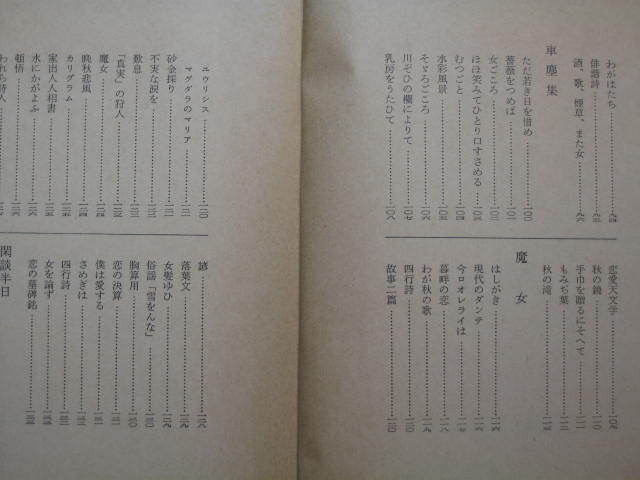 わがはたち……九四
俳諧詩……九五
酒、歌、煙草、また女……九六
車塵集
ただ若き日を惜め……一〇一
薔薇をつめば……一〇二
女ごころ……一〇三
ほほ笑みてひとり口すさめる……一〇四
むつごと……一〇五
水彩風景……一〇六
そぞろごころ……
川ぞひの欄によりて……一〇七
乳房をうたひて……一〇八
恋愛天文学……一〇九
秋の鏡……一一〇
手巾を贈るにそへて……一一一
もみぢ葉……一一二
秋の滝……一一三
魔女
はしがき……一一六
現代のダンテ……一一六
今ロオレライは……一一七
暮畔の恋……一一八
わが秋の歌……一一九
四行詩……一二〇
故事二篇……一二〇
ユウリシス……一二〇
マグダラのマリア……一二一
砂金採り……一二一
不実な涙を……一二二
歎息……一二二
「真実」の狩人……一二三
魔女……
晩秋悲風……一二四
カリグラム……一二四
家出人人相書……一二五
水にかがよふ……一二六
頓悟……一二六
われら詩人……一二七
諺……一二八
落葉文……一二九
女髪ゆひ……一二九
俗謡「雪をんな」……一三〇
胸算用……一三〇
恋の決算……一三一
僕は愛する……一三一
さめぎは……一三二
四行詩……一三三
女を論ず……
恋の墓碑銘……
閑談半日